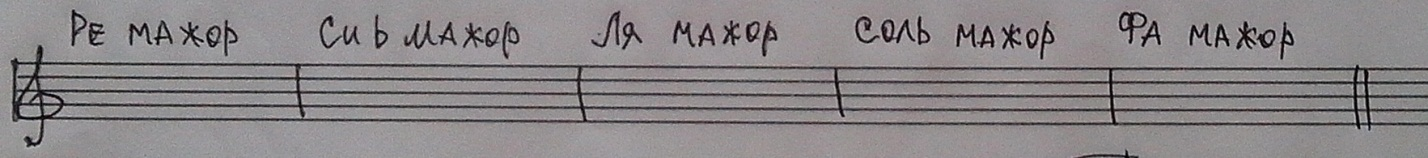 РЕ МАЖОР СИ b МАЖОР ЛЯ МАЖОР СОЛЬ МАЖОР ФА МАЖОР